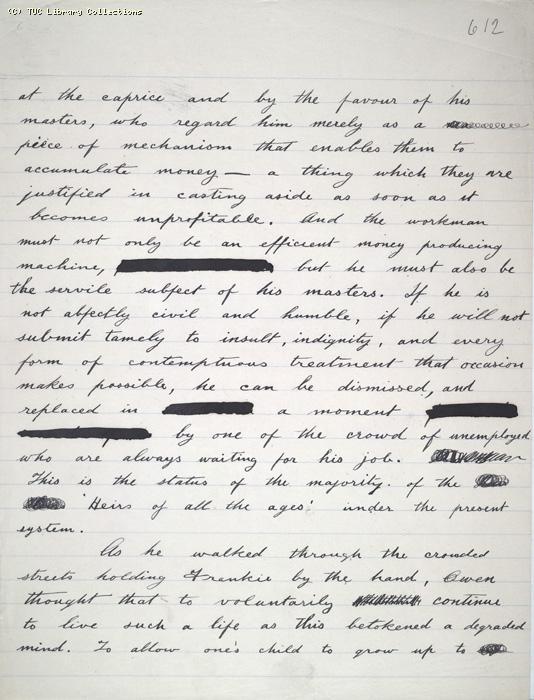 (C) TUC Library Collections
612
at the caprice and by the favour of his
masters, who regard him merely as a
piece of mechanism that enables them to
accumulate money — a thing which they are
justified in casting aside as soon as it
becomes unprofitable. And the workman
must not only be an efficient money producing
machine, but he must also be
the servile subject of his masters. If he is
not abjectly civil and humble, if he will not
submit tamely to insult, indignity, and every
form of contemptuous treatment that occasion
makes possible, he can be dismissed, and
replaced in a moment
by one of the crowd of unemployed
who are always waiting for his job.
This is the status of the majority of the
'Heirs of all the ages' under the present
system.
As he walked through the crowded
streets holding Frankie by the hand, Owen
thought that to voluntarily continue
to live such a life as this betokened a degraded
mind. To allow one's child to grow up to